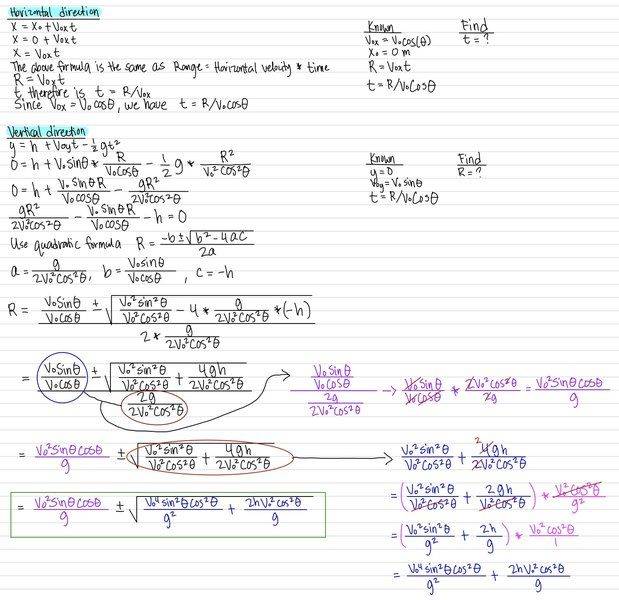 Horizontal direction
x = x₀ + V₀ₓt
x = 0 + V₀ₓt
x = V₀ₓt
The above formula is the same as Range = Horizontal velocity * time
R = V₀ₓt
t therefore is t = R/V₀ₓ
Since V₀ₓ = V₀cosθ, we have t = R/V₀cosθ
Known Find
V₀ₓ = V₀cos(θ) t = ?
x₀ = 0 m
R = V₀ₓt
t = R/V₀cosθ
Vertical direction
y = h + V₀yt - 1/2 gt²
0 = h + V₀sinθ * R/V₀cosθ - 1/2 g * R²/V₀²cos²θ
0 = h + V₀sinθR/V₀cosθ - gR²/2V₀²cos²θ
gR²/2V₀²cos²θ - V₀sinθR/V₀cosθ - h = 0
Use quadratic formula R = -b±√b²-4ac/2a
a = g/2V₀²cos²θ, b = V₀sinθ/V₀cosθ, c = -h
Known Find
y = 0 R = ?
V₀y = V₀sinθ
t = R/V₀cosθ
R = V₀sinθ/V₀cosθ ± √V₀²sin²θ/V₀²cos²θ - 4 * g/2V₀²cos²θ * (-h)
2 * g/2V₀²cos²θ
= V₀sinθ/V₀cosθ ± √V₀²sin²θ/V₀²cos²θ + 4gh/2V₀²cos²θ
2g/2V₀²cos²θ
V₀sinθ/V₀cosθ / 2g/2V₀²cos²θ → V₀sinθ/V₀cosθ * 2V₀²cos²θ/2g = V₀²sinθcosθ/g
= V₀²sinθcosθ/g ± √V₀²sin²θ/V₀²cos²θ + 4gh/2V₀²cos²θ
= V₀²sinθcosθ/g ± √V₀⁴sin²θcos²θ/g² + 2hV₀²cos²θ/g
V₀²sin²θ/V₀²cos²θ + 2 4gh/2V₀²cos²θ
= (V₀²sin²θ/V₀²cos²θ + 2gh/V₀²cos²θ) * V₀²cos²θ/g²
= (V₀²sin²θ/g² + 2h/g) * V₀²cos²θ/1
= V₀⁴sin²θcos²θ/g² + 2hV₀²cos²θ/g